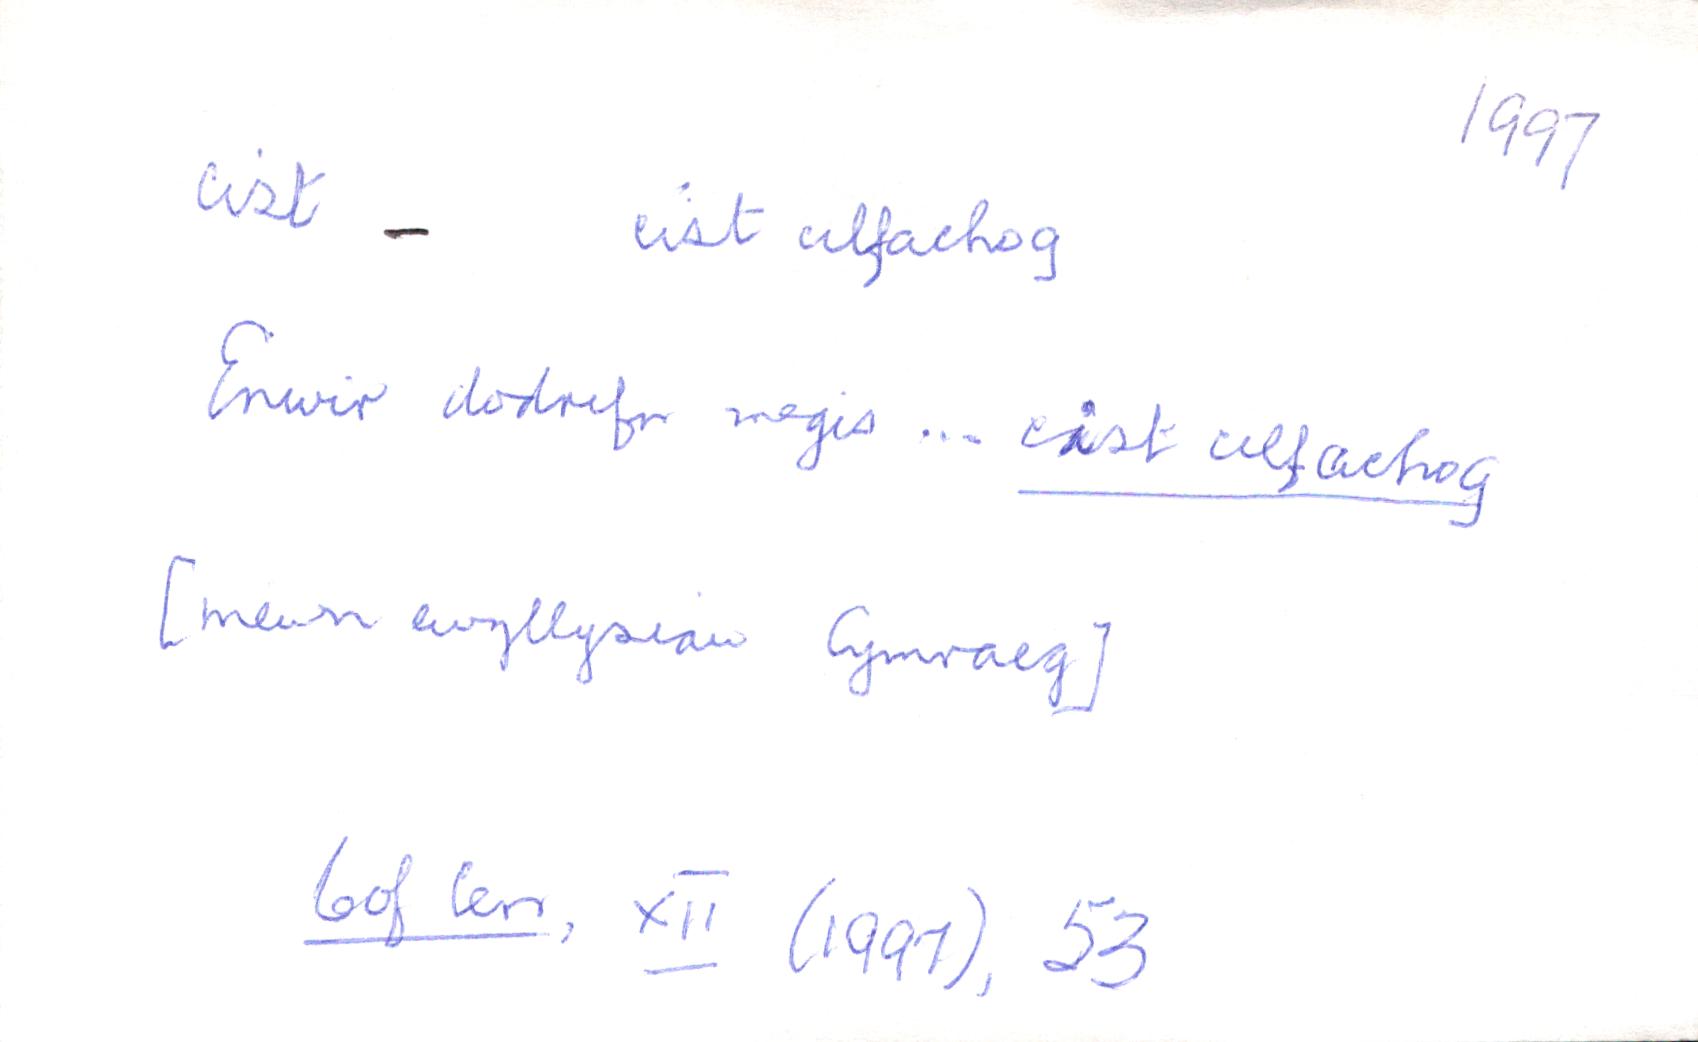 1997
cist – cist cilfachog
Enwir dodrefn megis ... cist cilfachog
[mewn ewyllysiau Cymraeg]
Cof Cen, XII (1997), 53